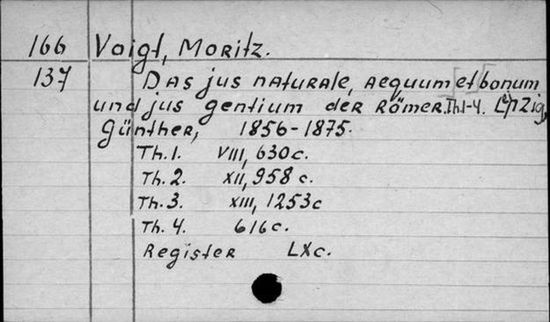 166 Voigt, Moritz.
137 Das jus naturale, aequum [et] bonum
und jus gentium der Römer. Th.1-4. Lpzig,
Günther, 1856-1875.
Th.1. VIII, 630c.
Th.2. XII, 958 c.
Th.3. XIII, 1253c
Th.4. 616c.
Register LXc.